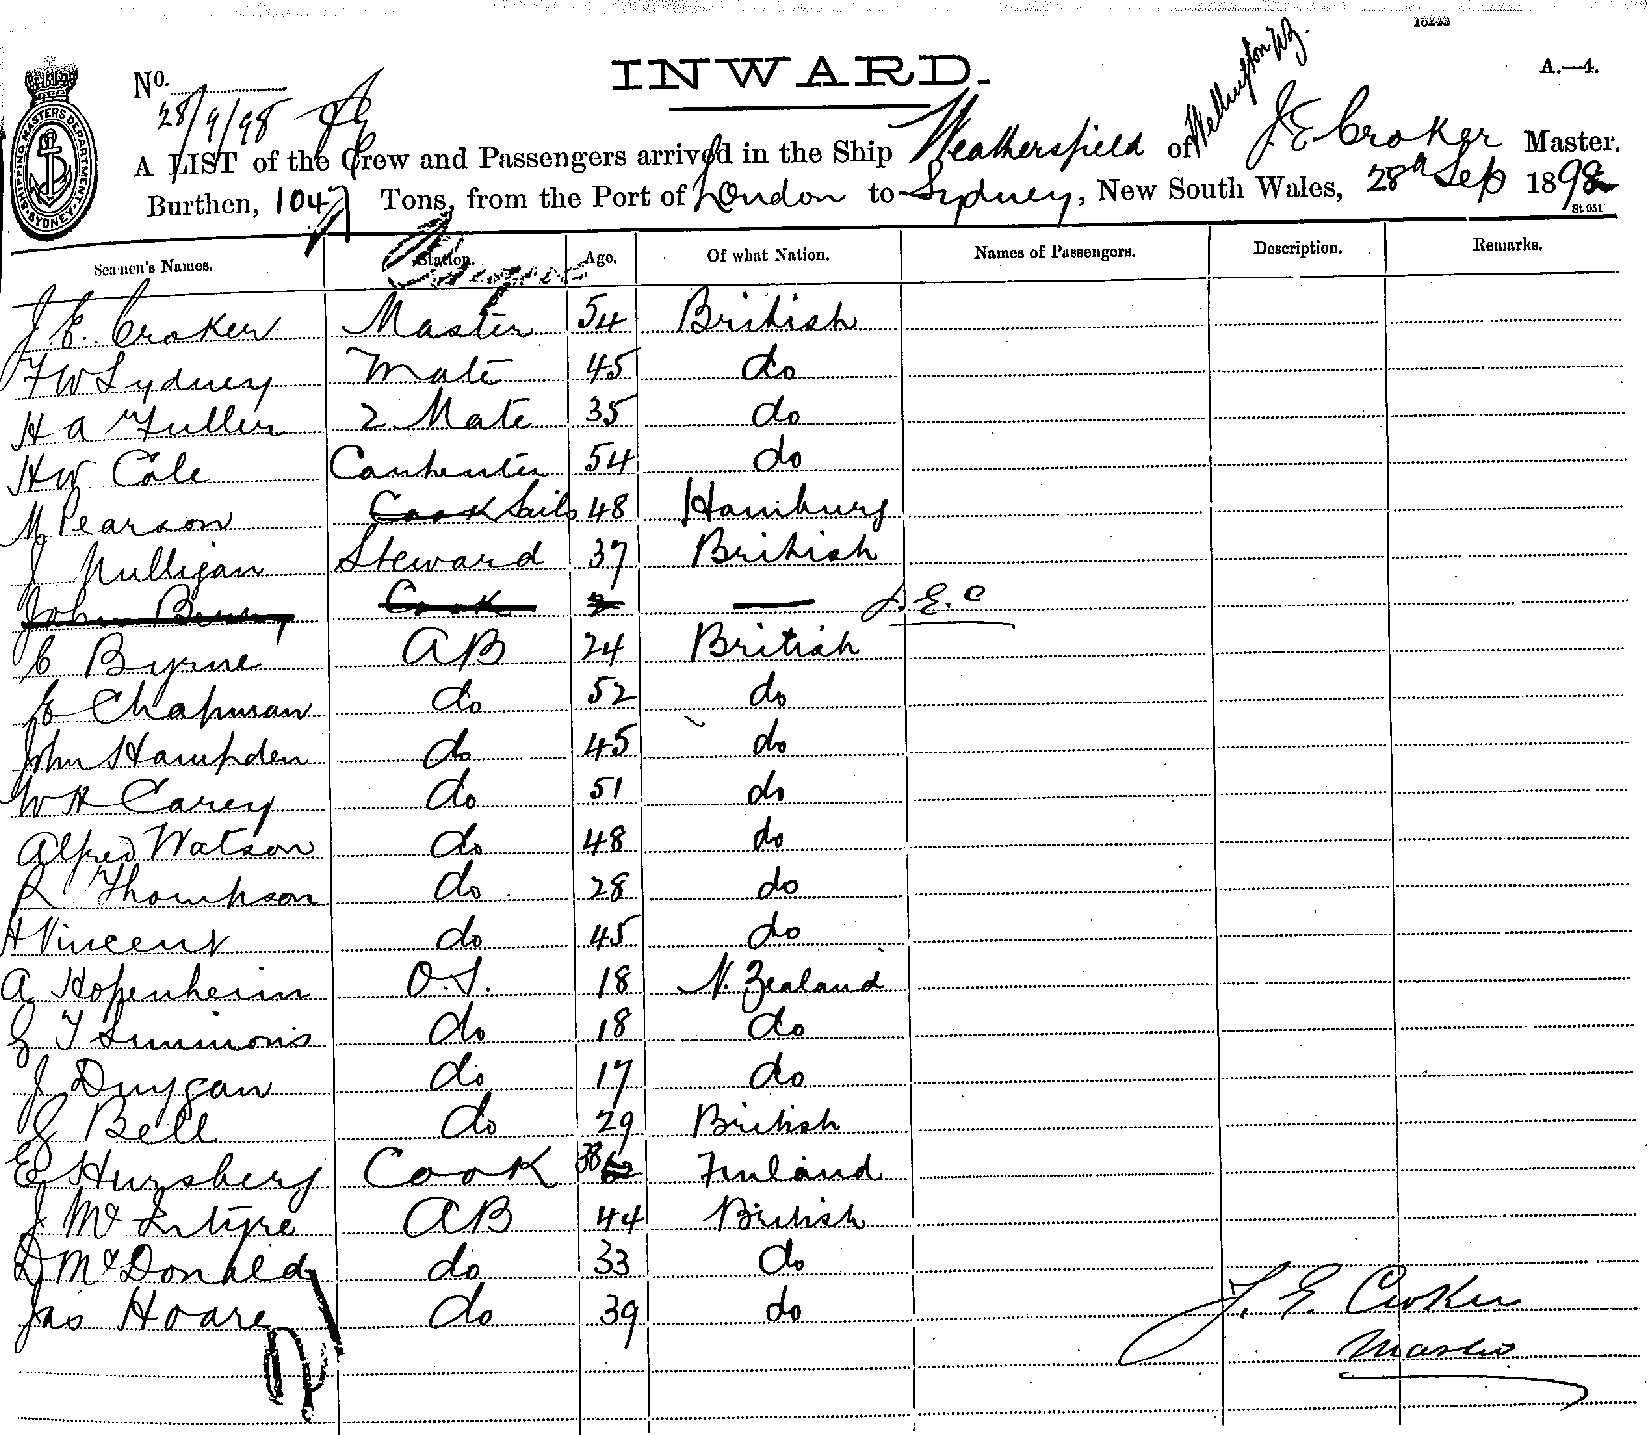 15243
INWARD.
A.—4.
No.
28/9/98
Wellington NZ.
A LIST of the Crew and Passengers arrived in the Ship Weathersfield of J E Croker Master,
Burthen, 1047 Tons, from the Port of London to Sydney, New South Wales, 28th Sep 1898
St. 051
SHIPPING MASTERS DEPARTMENT SYDNEY
Seamen's Names. Station. Age. Of what Nation. Names of Passengers. Description. Remarks.
J E. Croker Master 54 British
F W Sydney Mate 45 do
H A Fuller 2 Mate 35 do
H W Cole Carpenter 54 do
M Pearson Cook Sails 48 Hamburg
J Mulligan Steward 37 British
John Cook J. E. C
C Byrne AB 24 British
E Chapman do 52 do
John Hampden do 45 do
W H Carey do 51 do
Alfred Watson do 48 do
R Thompson do 28 do
H Vincent do 45 do
A Hopenheim O.S. 18 N. Zealand
G T Simmons do 18 do
J Duygan do 17 do
G Bell do 29 British
E Hursberg Cook 38 Finland
J McIntyre AB 44 British
D McDonald do 33 do
Jas Hoare do 39 do
J. E. Croker
Master